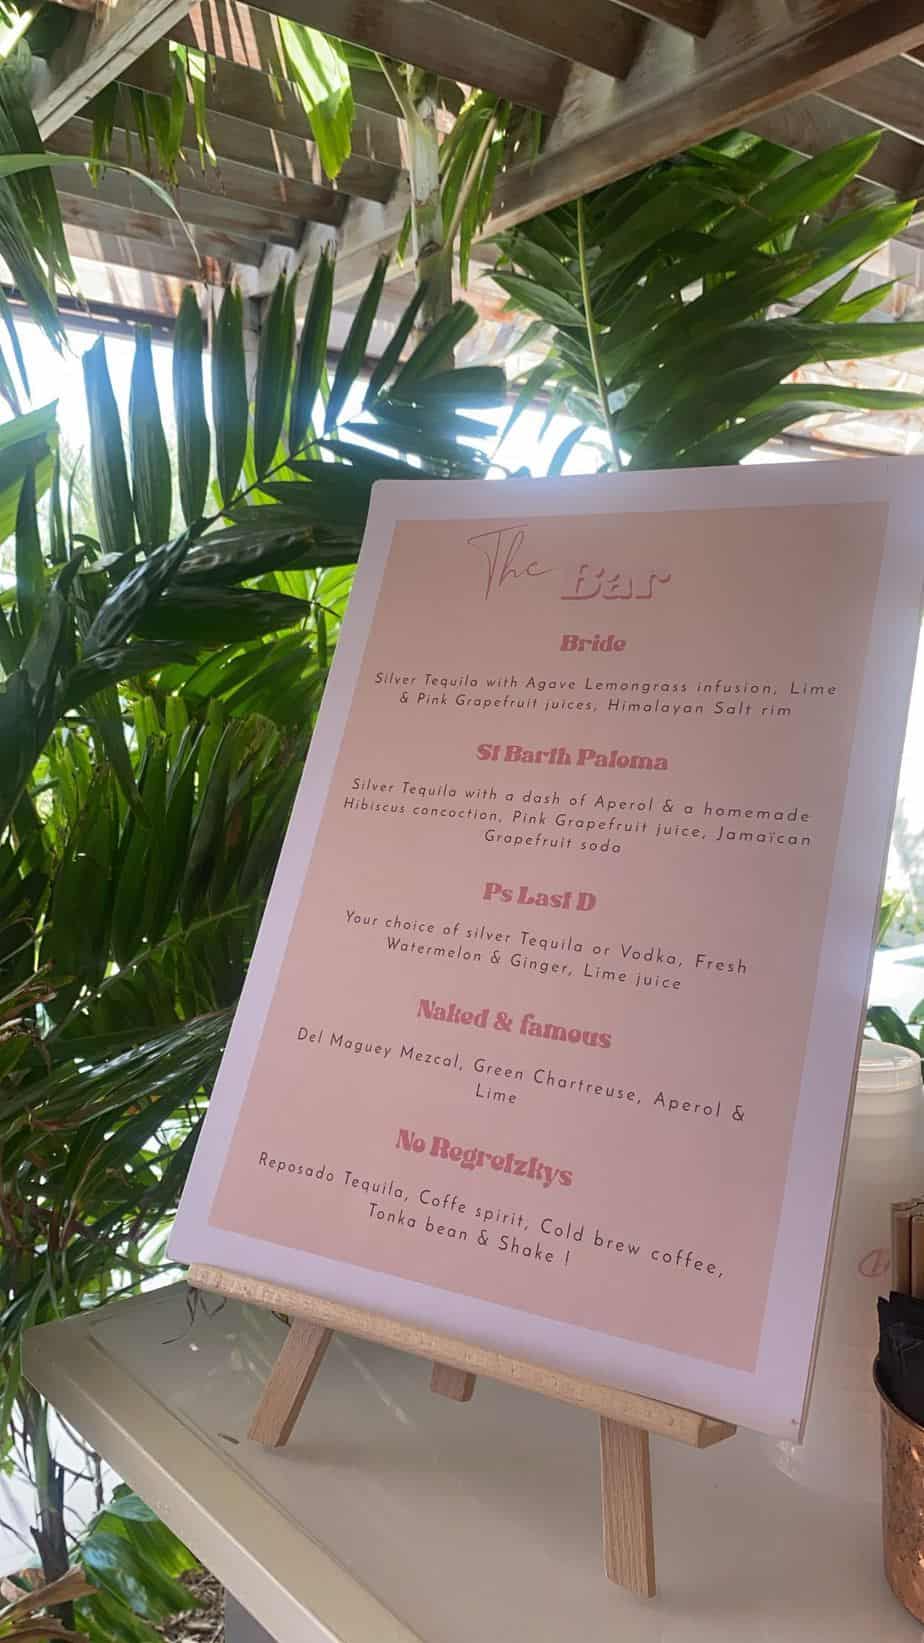 The Bar
Bride
Silver Tequila with Agave Lemongrass infusion, Lime
& Pink Grapefruit juices, Himalayan Salt rim
St Barth Paloma
Silver Tequila with a dash of Aperol & a homemade
Hibiscus concoction, Pink Grapefruit juice, Jamaïcan
Grapefruit soda
Ps Last D
Your choice of silver Tequila or Vodka, Fresh
Watermelon & Ginger, Lime juice
Naked & famous
Del Maguey Mezcal, Green Chartreuse, Aperol &
Lime
No Regretzkys
Reposado Tequila, Coffe spirit, Cold brew coffee,
Tonka bean & Shake !